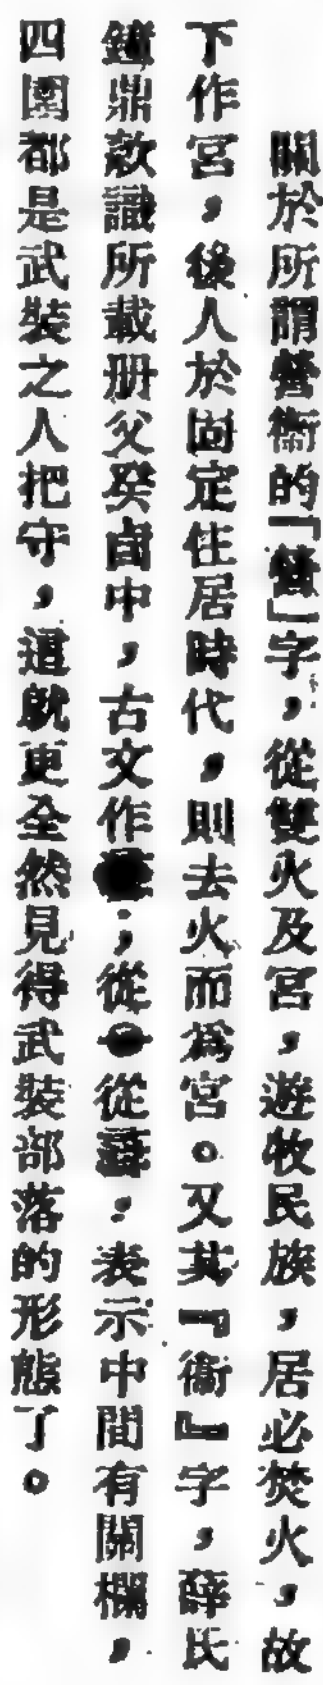 關於所謂營衞的「營」字，從雙火及宮，遊牧民族，居必焚火，故
下作宮，後人於固定住居時代，則去火而爲宮。又其『衞』字，薛氏
鐘鼎欵識所載册父癸卣中，古文作；從從，表示中間有關欄，
四圍都是武裝之人把守，這就更全然見得武裝部落的形態了。